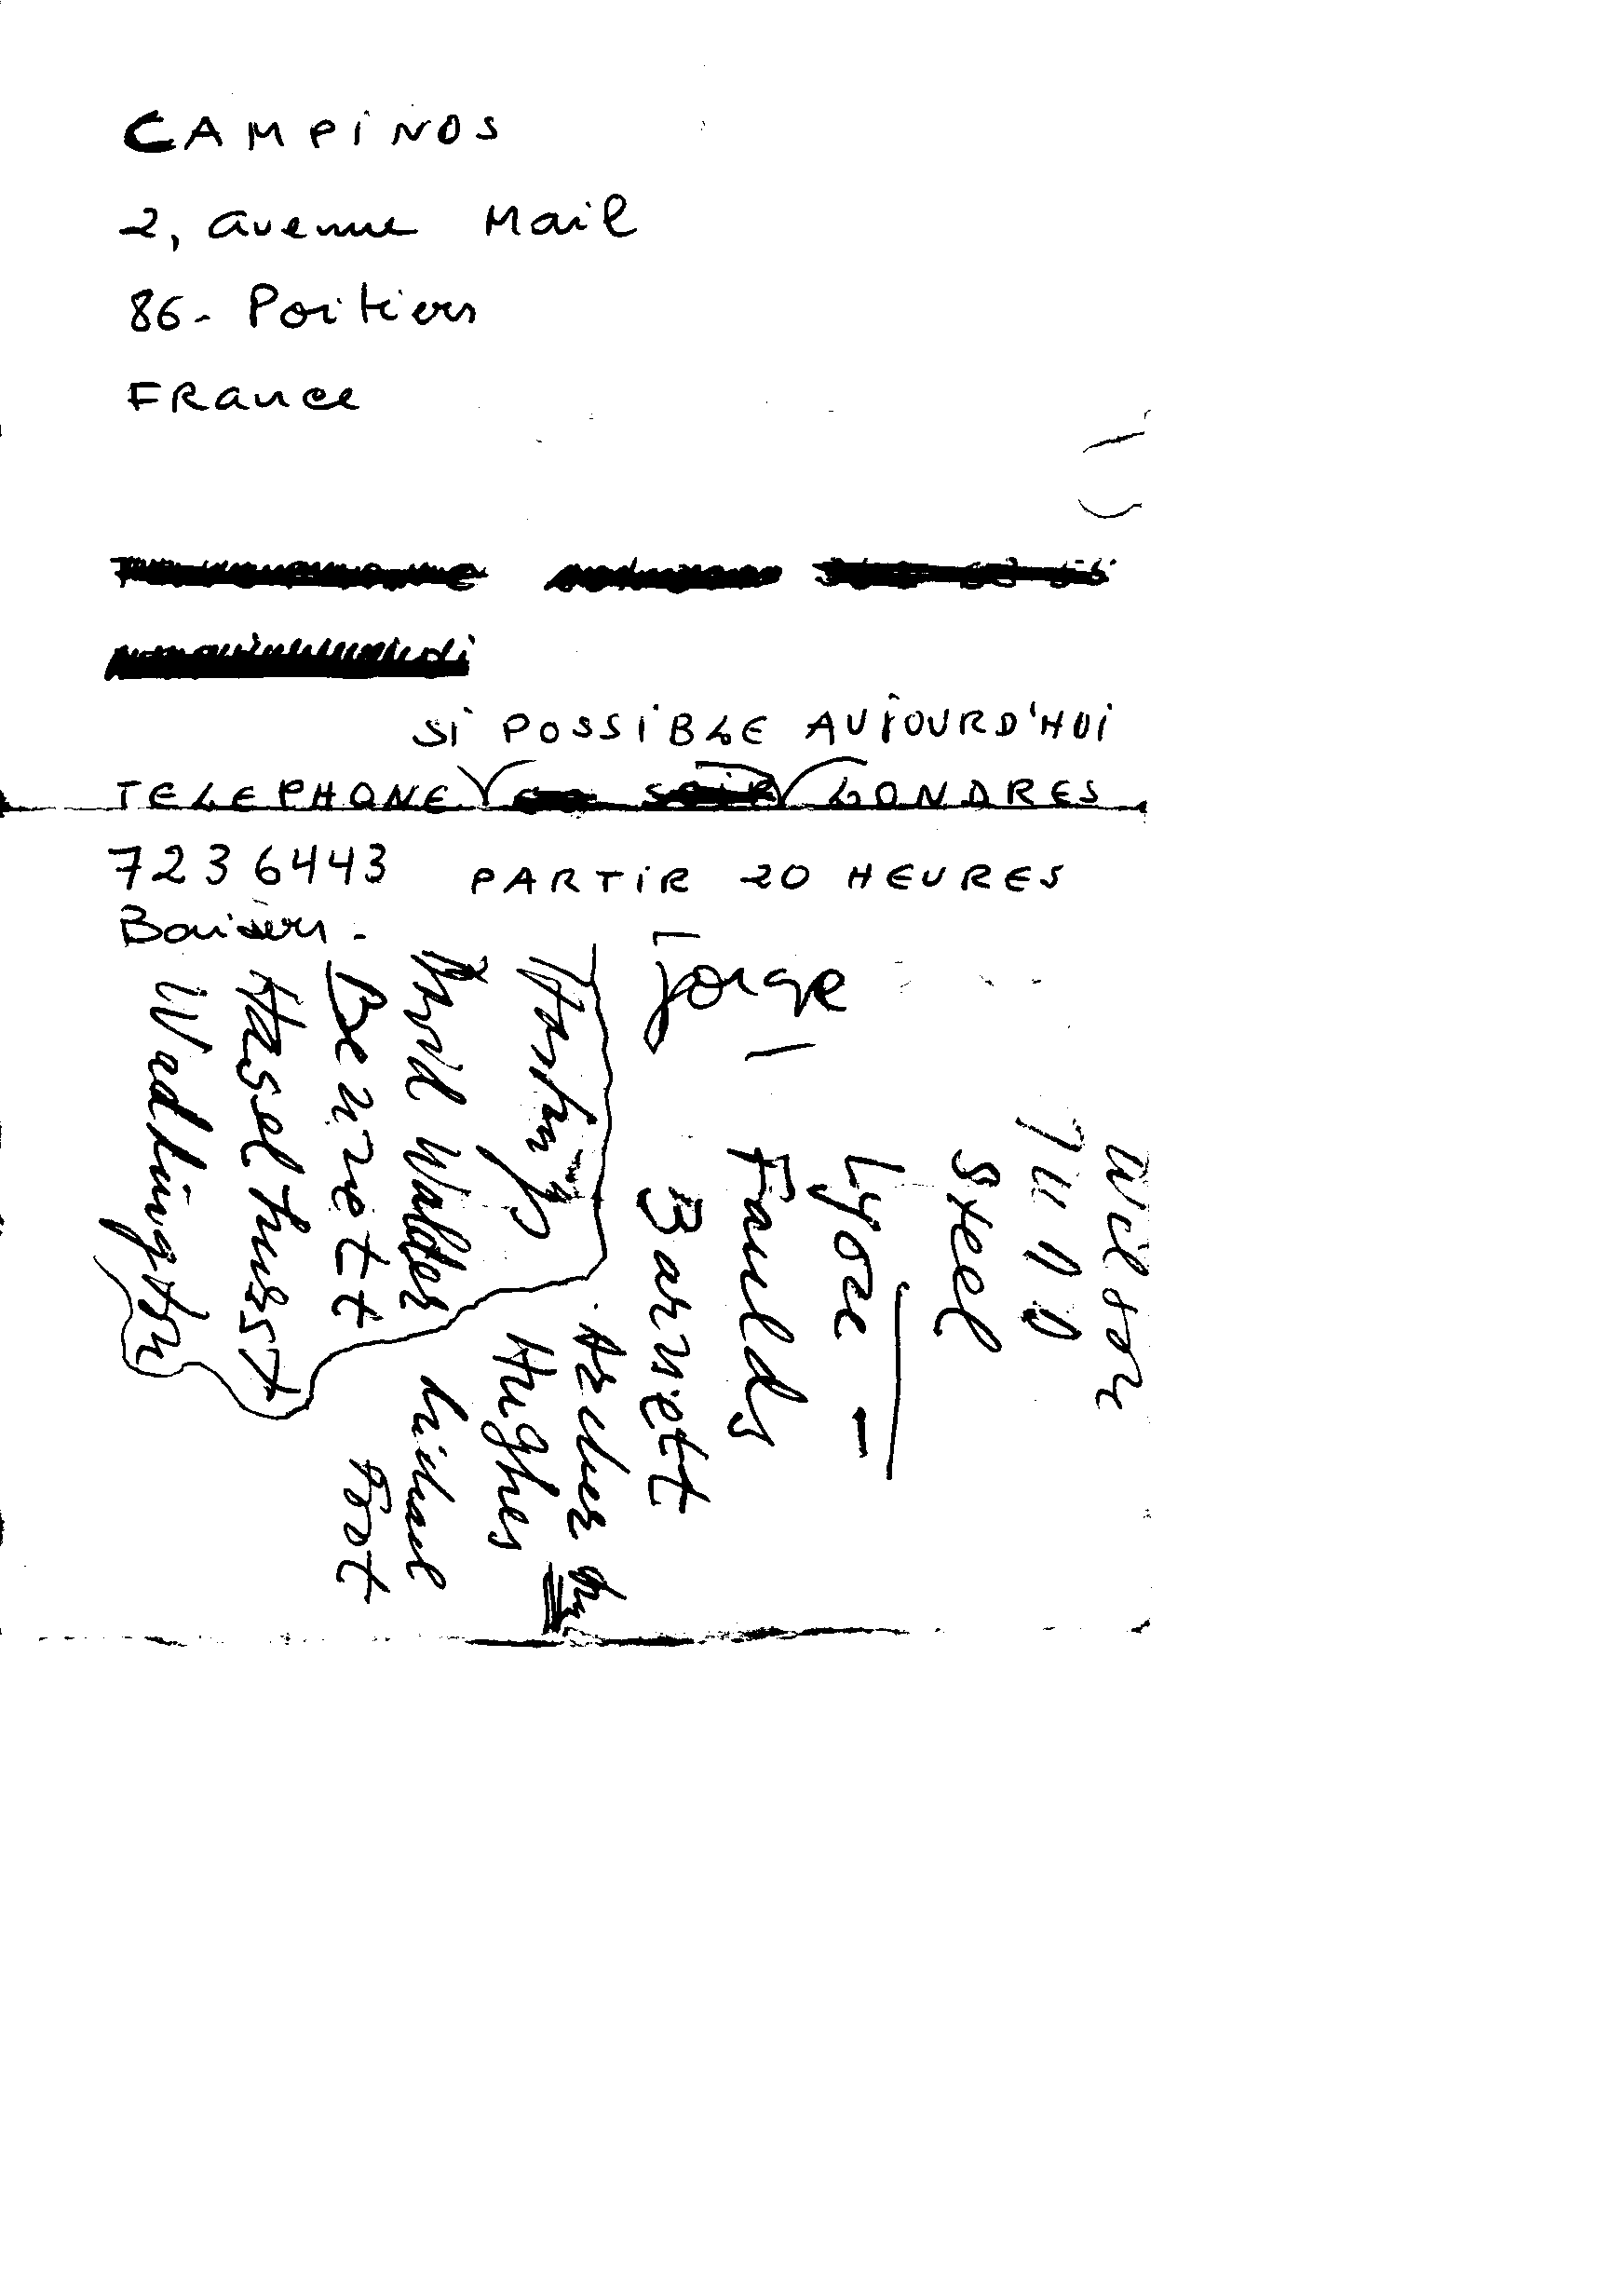 CAMPiNOS
2, avenue Mail
86- Poitiers
FRance
Si POSSiBLE AUJOURD'HUi
TELEPHONE LONDRES
7236443 PARTiR 20 HEURES
Baisers.
Jorge
Wilson
Steel
Lyon -
Faulds
Barnett
Hughes
Michael
Foot
Walter
Bennett
Haselhurst
Waddington